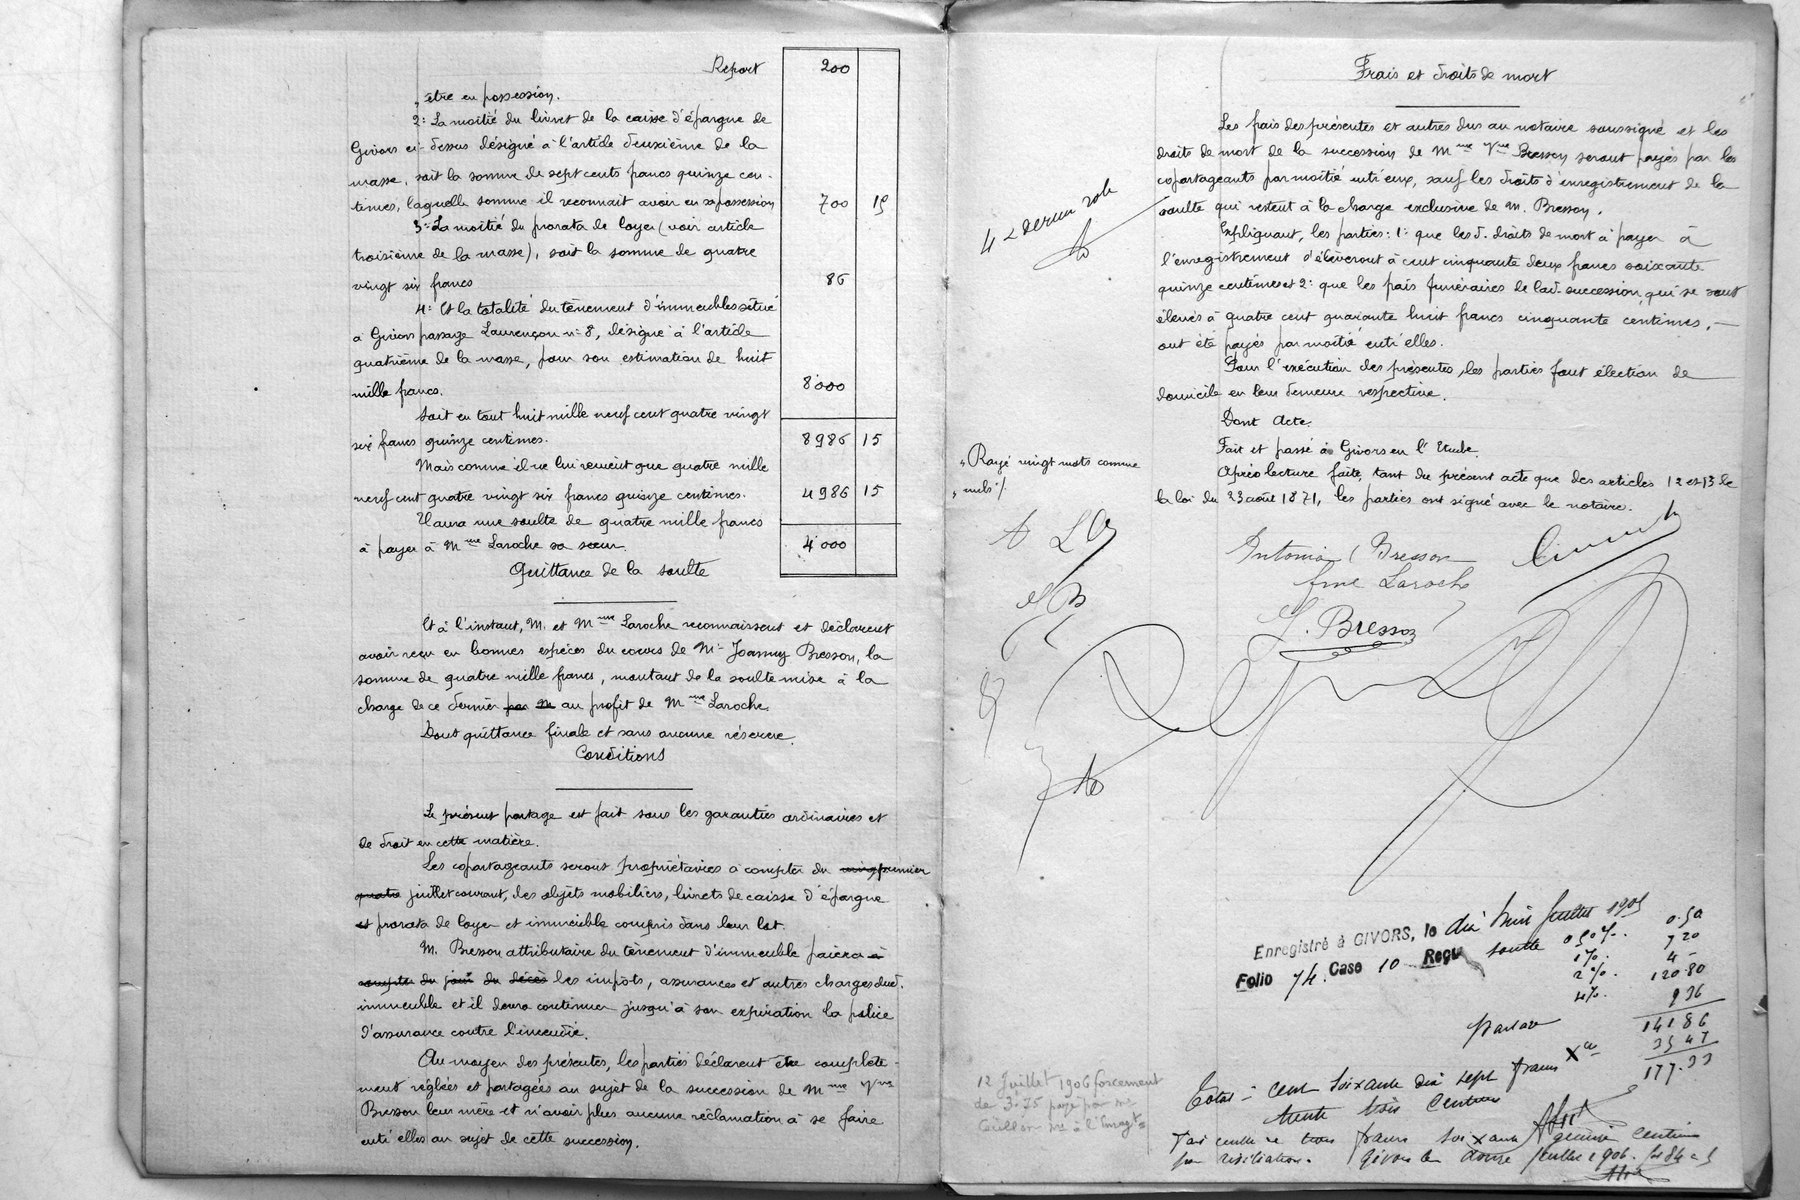 Report 200
être en possession.
2º La moitié du livret de la caisse d'épargne de
Givors ci-dessus désigné à l'article deuxième de la
masse, soit la somme de sept cents francs quinze cen-
times, laquelle somme il reconnait avoir en sa possession 700 15
3º La moitié du prorata de loyer (voir article
troisième de la masse), soit la somme de quatre
vingt six francs 86
4º Et la totalité du tènement d'immeubles situé
à Givors passage Laurençon nº 8, désigné à l'article
quatrième de la masse, pour son estimation de huit
mille francs. 8000
Soit en tout huit mille neuf cent quatre vingt
six francs quinze centimes. 8986 15
Mais comme il ne lui revient que quatre mille
neuf cent quatre vingt six francs quinze centimes. 4986 15
Il aura une soulte de quatre mille francs
à payer à Mme Laroche sa sœur. 4000
Quittance de la soulte
Et à l'instant, M. et Mme Laroche reconnaissent et déclarent
avoir reçu en bonnes espèces du cours de Mr Joanny Bresson, la
somme de quatre mille francs, montant de la soulte mise à la
charge de ce dernier par M au profit de Mme Laroche.
Dont quittance finale et sans aucune réserve.
Conditions
Le présent partage est fait sous les garanties ordinaires et
de droit en cette matière.
Les copartageants seront propriétaires à compter du vingt premier
quatre juillet courant, des objets mobiliers, livrets de caisse d'épargne
et prorata de loyer et immeuble compris dans leur lot.
M. Bresson attributaire du tènement d'immeuble paiera à
compter du jour du décès les impôts, assurances et autres charges dud.
immeuble et il devra continuer jusqu'à son expiration la police
d'assurance contre l'incendie.
Au moyen des présentes, les parties déclarent être complète-
ment réglées et partagées au sujet de la succession de Mme Vve
Bresson leur mère et n'avoir plus aucune réclamation à se faire
entr'elles au sujet de cette succession.
Frais et droits de mort
Les frais des présentes et autres dus au notaire soussigné et les
droits de mort de la succession de Mme Vve Bresson seront payés par les
copartageants par moitié entr'eux, sauf les droits d'enregistrement de la
soulte qui restent à la charge exclusive de M. Bresson.
Expliquant, les parties: 1º que les d. droits de mort à payer à
l'enregistrement s'élèveront à cent cinquante deux francs soixante
quinze centimes et 2º que les frais funéraires de lad. succession, qui se sont
élevés à quatre cent quarante huit francs cinquante centimes,
ont été payés par moitié entr'elles.
Pour l'exécution des présentes, les parties font élection de
domicile en leur demeure respective.
Dont Acte.
Fait et passé à Givors en l'Etude.
Après lecture faite, tant du présent acte que des articles 12 et 13 de
la loi du 23 août 1871, les parties ont signé avec le notaire.
Rayé vingt mots comme
nuls
Bresson
fme Laroche
J. Bresson
Enregistré à GIVORS, le dix huit juillet 1905
Folio 74. Case 10 Reçu soulte
0,50%. 0.50
1%. 7 20
2%. 4 -
4%. 120.80
9 36
141 86
35 47
177.33
Total = cent soixante dix sept francs
trente trois centimes
12 Juillet 1906 forcement
de 3.75 payé par Me
à l'Enregt
francs soixante quinze centimes
Givors le douze juillet 1906.